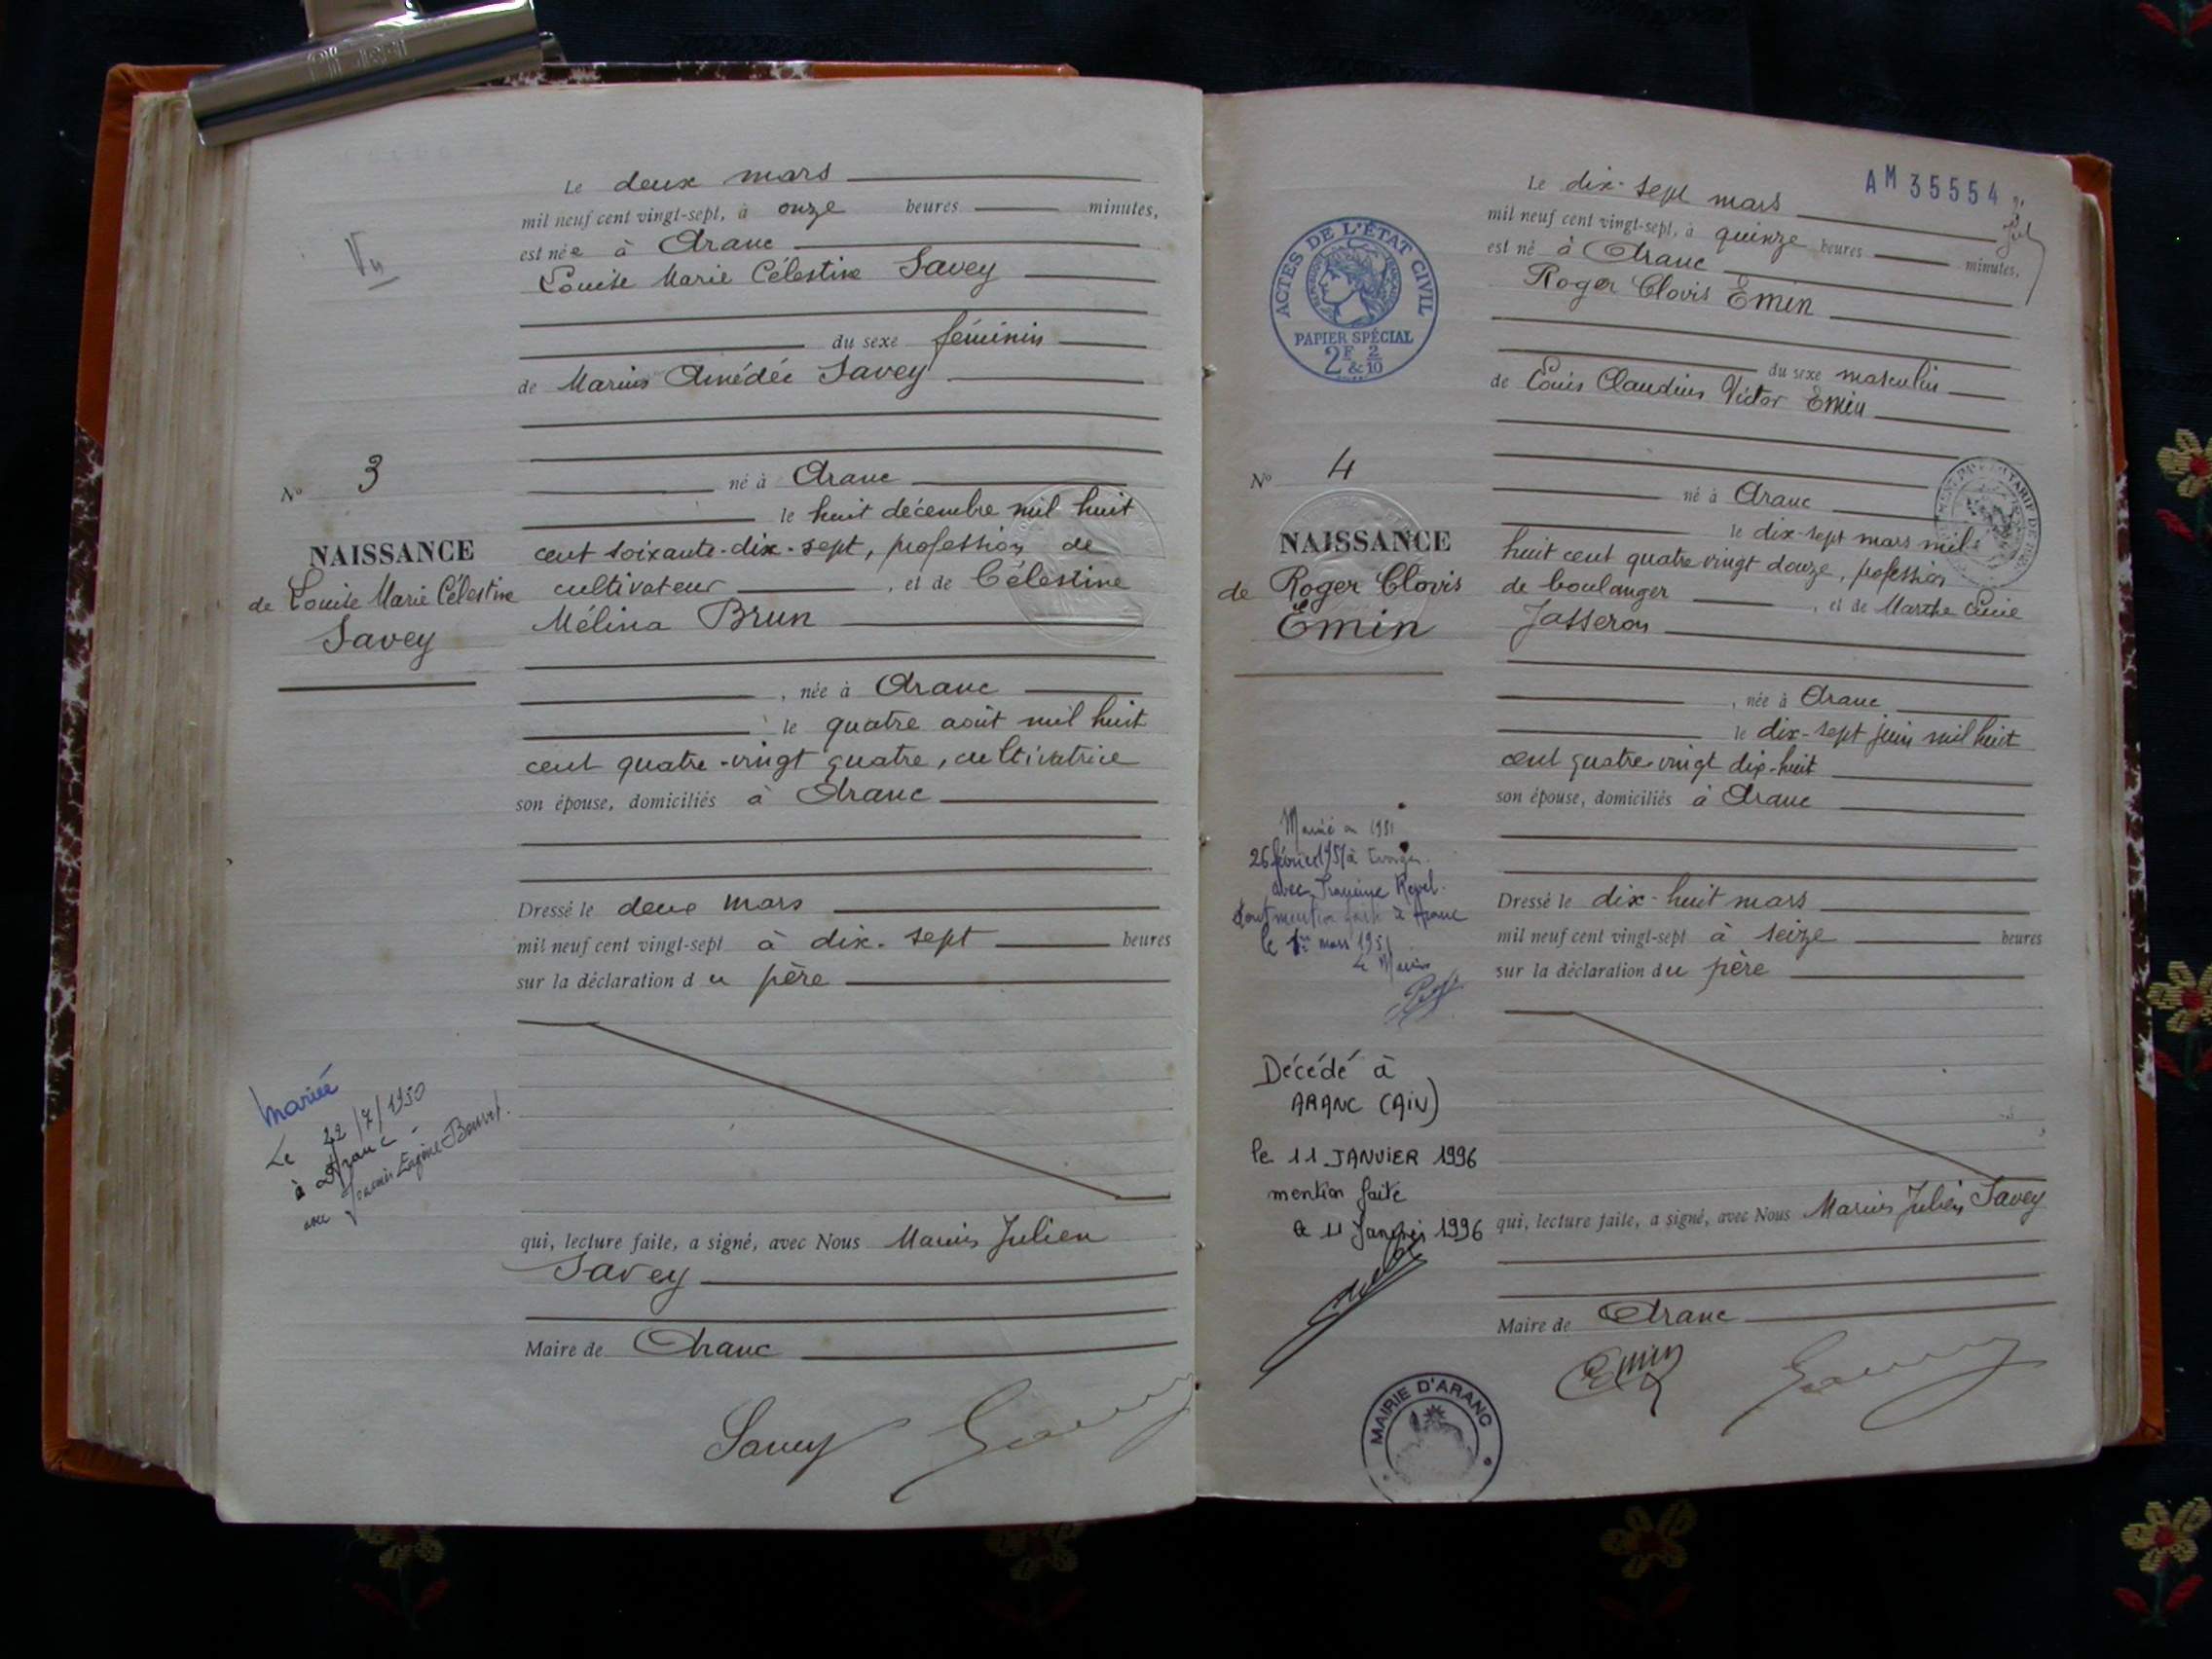 Vu
Le deux mars
mil neuf cent vingt-sept, à onze heures minutes,
est née à Aranc
Louise Marie Célestine Savey
du sexe féminin
de Marius Amédée Savey
né à Aranc
le huit décembre mil huit
cent soixante-dix-sept, profession de
cultivateur, et de Célestine
Mélina Brun
, née à Aranc
le quatre août mil huit
cent quatre-vingt quatre, cultivatrice
son épouse, domiciliés à Aranc
Dressé le deux mars
mil neuf cent vingt-sept à dix-sept heures
sur la déclaration du père
qui, lecture faite, a signé, avec Nous Marius Julien
Savey
Maire de Aranc
Savey
No 3
NAISSANCE
de Louise Marie Célestine
Savey
Mariée
Le 22/7/1950
à Aranc
avec Eugène
AM 35554
Le dix-sept mars
mil neuf cent vingt-sept, à quinze heures minutes,
est né à Aranc
Roger Clovis Emin
du sexe masculin
de Louis Claudius Victor Emin
né à Aranc
le dix-sept mars mil
huit cent quatre vingt douze, profession
de boulanger, et de Marthe Lucie
Jasseron
, née à Aranc
le dix-sept juin mil huit
cent quatre-vingt dix-huit
son épouse, domiciliés à Aranc
Dressé le dix-huit mars
mil neuf cent vingt-sept à seize heures
sur la déclaration du père
qui, lecture faite, a signé, avec Nous Marius Julien Savey
Maire de Aranc
Emin
ACTES DE L'ÉTAT CIVIL
RÉPUBLIQUE FRANÇAISE
PAPIER SPÉCIAL
2F & 2/10
No 4
NAISSANCE
de Roger Clovis
Emin
Marié
26 février 1951 à
avec Revel
dont mention faite à Aranc
le 1er mars 1951
Le Maire
Décédé à
ARANC (AIN)
le 11 JANVIER 1996
mention faite
le 11 Janvier 1996
MAIRIE D'ARANC